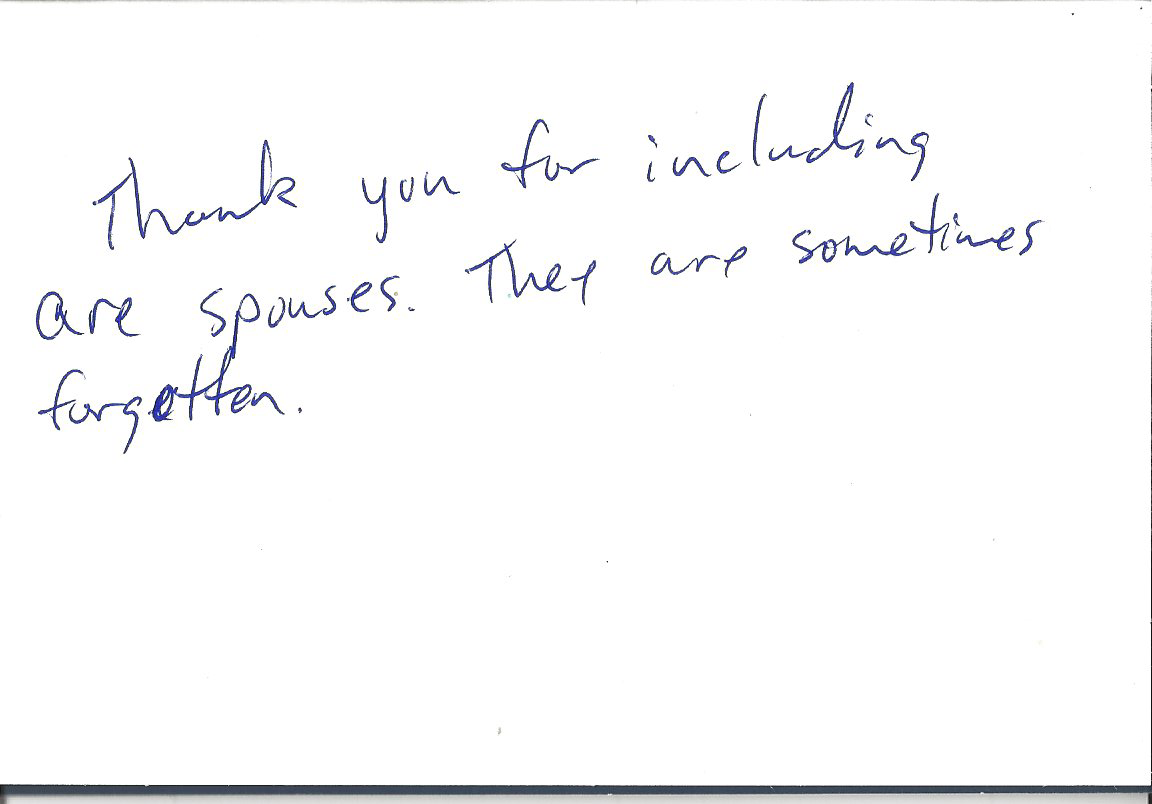 Thank you for including
are spouses. They are sometimes
forgotten.